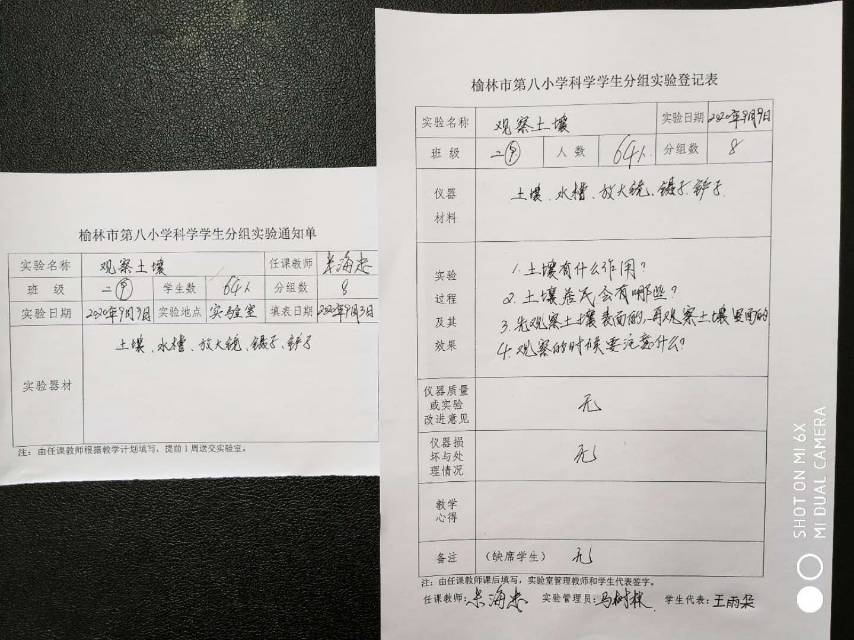 榆林市第八小学科学学生分组实验通知单
实验名称 观察土壤 任课教师 海忠
班 级 二 学生数 64人 分组数 8
实验日期 2020年9月9日 实验地点 实验室 填表日期 2020年9月3日
实验器材 土壤、水槽、放大镜、镊子、铲子
注：由任课教师根据教学计划填写，提前1周送交实验室。
榆林市第八小学科学学生分组实验登记表
实验名称 观察土壤 实验日期 2020年9月9日
班 级 二 人 数 64人 分组数 8
仪器材料 土壤、水槽、放大镜、镊子、铲子
实验过程及其效果
1. 土壤有什么作用？
2. 土壤 会有哪些？
3. 先观察土壤表面的，再观察土壤里面的
4. 观察的时候要注意什么？
仪器质量或实验改进意见 无
仪器损坏与处理情况 无
教学心得
备注 （缺席学生） 无
注：由任课教师课后填写，实验室管理教师和学生代表签字。
任课教师： 海忠 实验管理员：马树林 学生代表：王雨朵
SHOT ON MI 6X
MI DUAL CAMERA